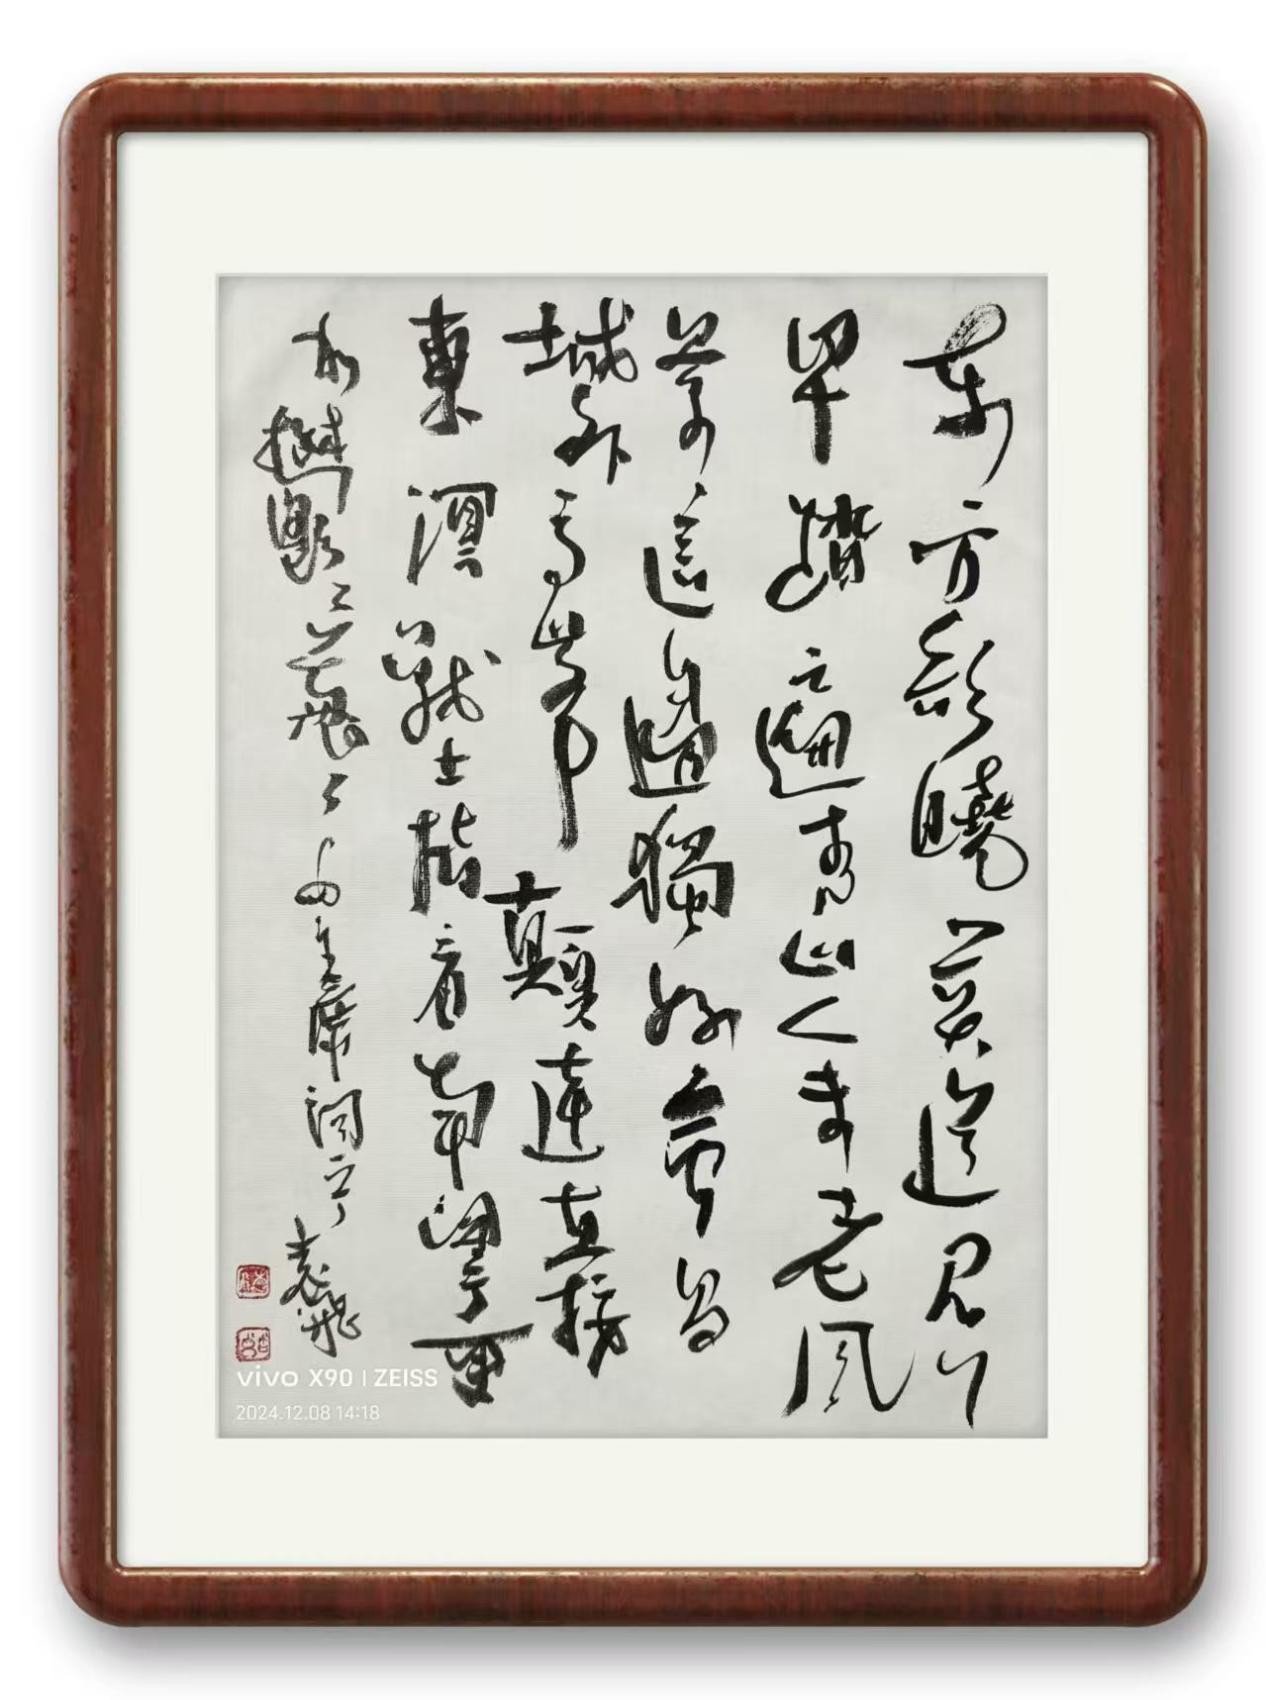 東方欲曉莫道君行
早踏遍青山人未老風
景這邊獨好會昌
城外高峰顛連直接
東溟戰士指看南粵更
加鬱〻葱〻 毛主席詞 袁飛
vivo X90 | ZEISS
2024.12.08 14:18